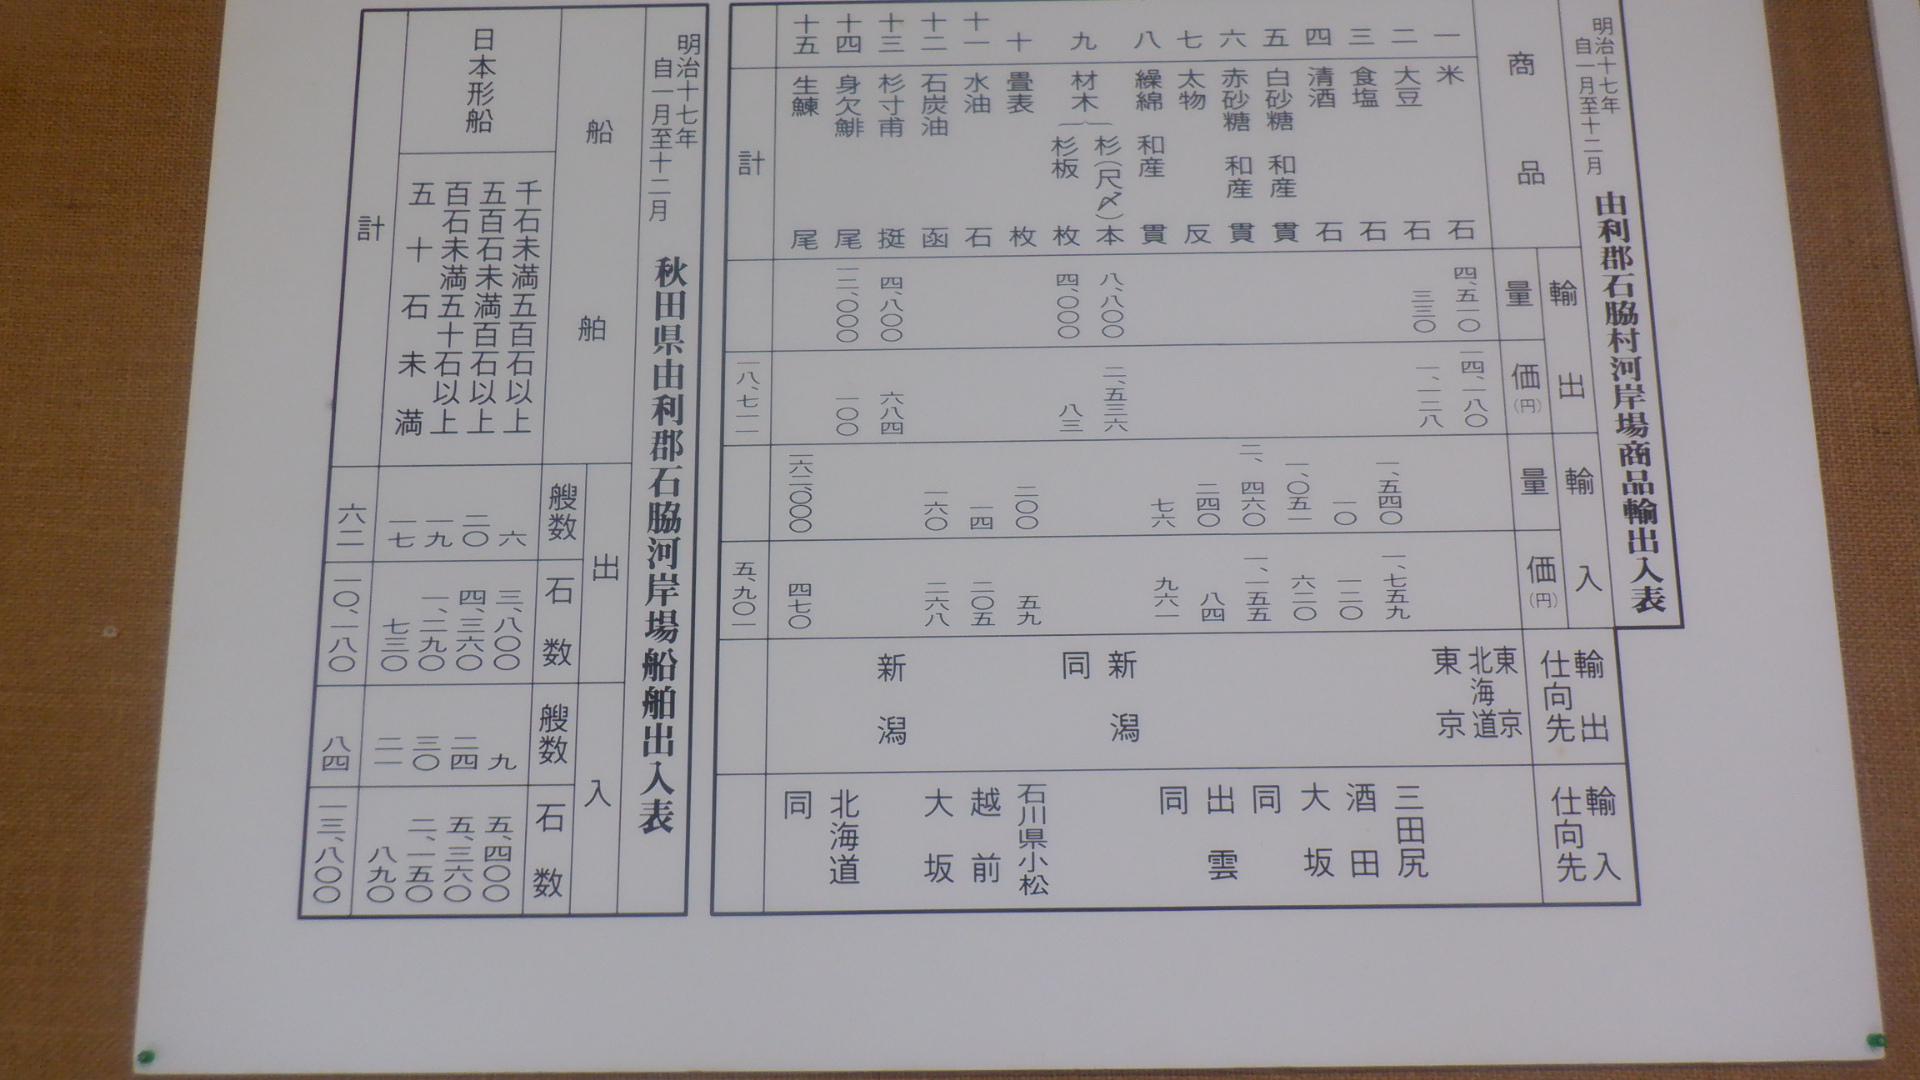 明治十七年
自一月至十二月
由利郡石脇村河岸場商品輸出入表
商品
輸出
量
価(円)
輸入
量
価(円)
輸出仕向先
輸入仕向先
一 米 石 四、五一〇 一四、一八〇 東京 北海道
二 大豆 石 三三〇 一、一二八 東京
三 食塩 石 一、五四〇 一、七五九 三田尻
四 清酒 石 一〇 一二〇 酒田
五 白砂糖 和産 貫 一、〇五一 六二〇 大坂
六 赤砂糖 和産 貫 二、四六〇 一、一五五 同
七 太物 反 二四〇 八四 出雲
八 繰綿 和産 貫 七六 九六一 同
九 材木
杉(尺〆) 本 八、八〇〇 二、五三六 新潟
杉板 枚 四、〇〇〇 八三 同
十 畳表 枚 二〇〇 五九 石川県小松
十一 水油 石 一四 二〇五 越前
十二 石炭油 函 一六〇 二六八 大坂
十三 杉寸甫 挺 四、八〇〇 六八四 新潟
十四 身欠鯡 尾 一〇〇 北海道
十五 生鰊 尾 一六二、〇〇〇 四七〇 同
計 一八、七一一 五、九〇一
明治十七年
自一月至十二月
秋田県由利郡石脇河岸場船舶出入表
船舶
出
艘数
石数
入
艘数
石数
日本形船
千石未満五百石以上 六 三、八〇〇 九 五、四〇〇
五百石未満百石以上 二〇 四、三六〇 二四 五、三六〇
百石未満五十石以上 一九 一、二九〇 三〇 二、一五〇
五十石未満 一七 七三〇 二一 八九〇
計 六二 一〇、一八〇 八四 一三、八〇〇